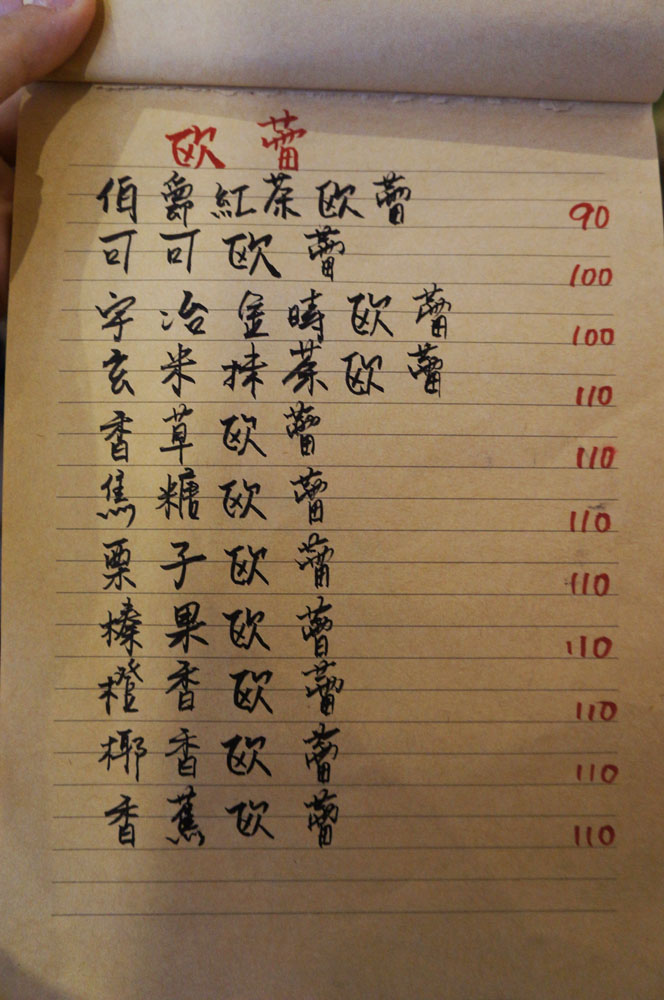 欧蕾
伯爵紅茶欧蕾 90
可可欧蕾 100
宇治金時欧蕾 100
玄米抹茶欧蕾 110
香草欧蕾 110
焦糖欧蕾 110
栗子欧蕾 110
榛果欧蕾 110
橙香欧蕾 110
椰香欧蕾 110
香蕉欧蕾 110